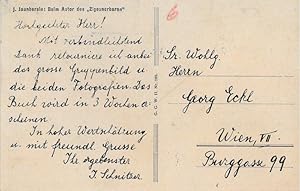 J. Jaunbersin: Beim Autor des „Zigeunerbaron"
6
Hochgeehrter Herr!
Mit verbindlichstem
Dank retourniere ich anbei
das grosse Gruppenbild u
die beiden Fotografien. Das
Buch wird in 3 Wochen er
scheinen.
In hoher Wertschätzung
u. mit freundl. Grusse
Ihr ergebenster
J. Schnitzer
Sr. Wohlg.
Herrn
Georg Eckl
Wien, VII
Burggasse 99